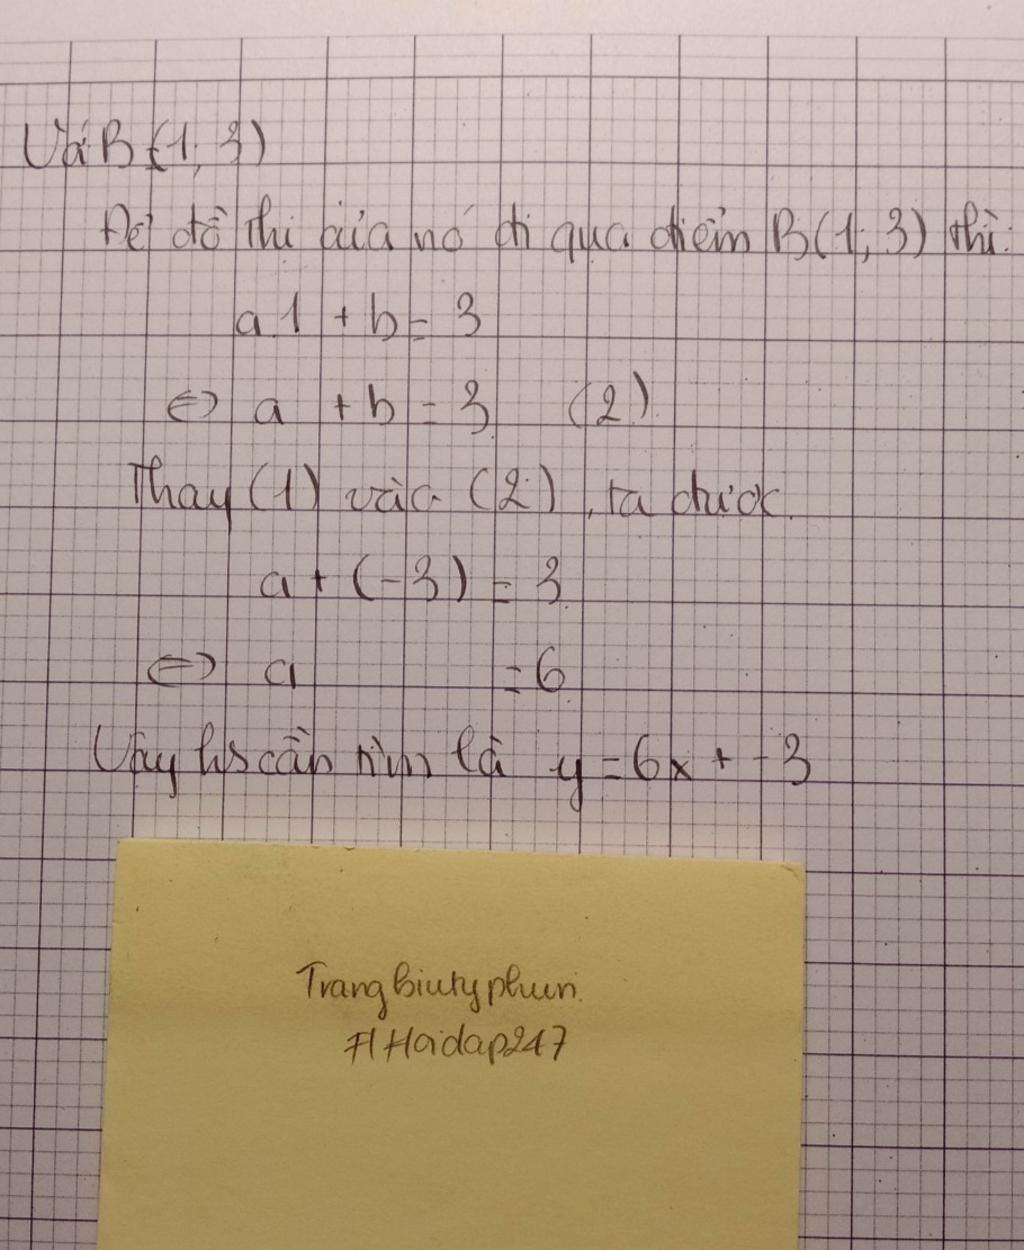 Và B (1; 3)
Để đồ thị của nó đi qua điểm B(1; 3) thì:
a.1 + b = 3
⇔ a + b = 3 (2)
Thay (1) vào (2), ta được
a + (-3) = 3
⇔ a = 6
Vậy hs cần tìm là y = 6x + -3
Trangbiutyphun.
#Hoidap247